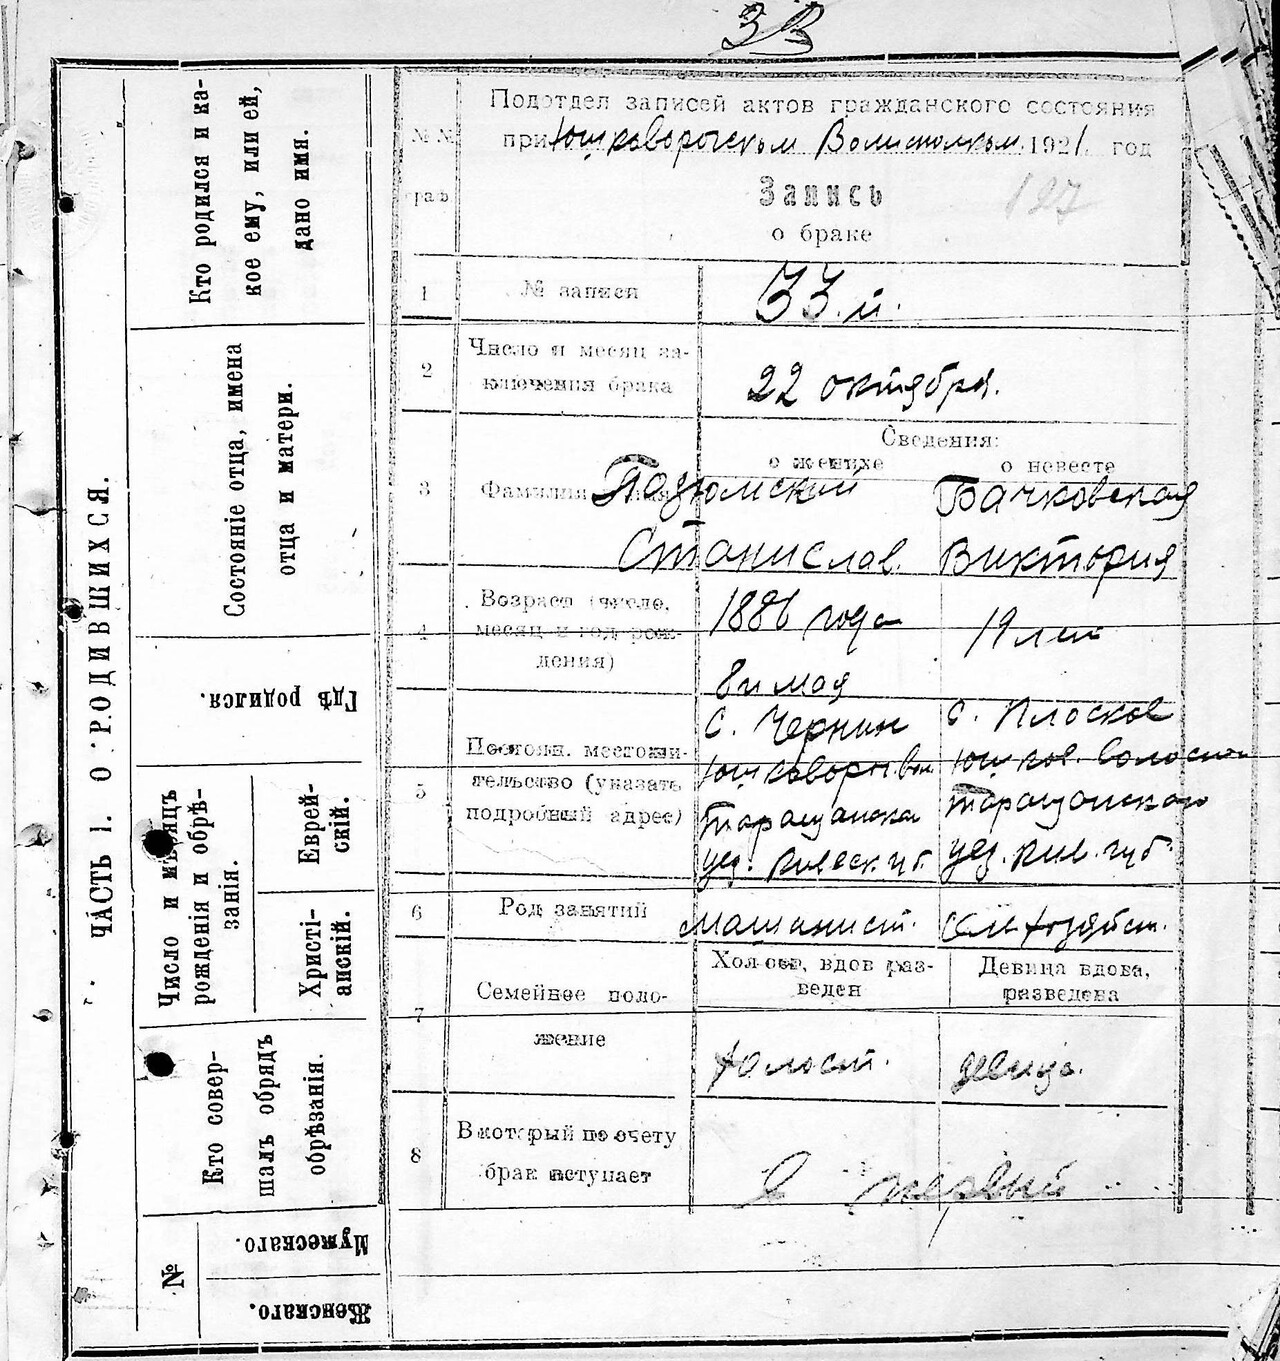 33
ЧАСТЬ I. О РОДИВШИХСЯ.
Кто родился и ка-
кое ему, или ей,
дано имя.
Состояніе отца, имена
отца и матери.
Гдѣ родился.
Число и мѣсяцъ
рожденія и обрѣ-
занія.
Еврей-
скій.
Христі-
анскій.
Кто совер-
шалъ обрядъ
обрѣзанія.
№
Мужескаго.
Женскаго.
№ №
граф
Подотдел записей актов гражданского состояния
при Юшковорогском Волисполком. 1921. год
Запись
127
о браке
1
№ записи
33.й.
2
Число и месяц за-
ключения брака
22 октября.
Сведения:
о женихе
о невесте
3
Фамилия
Подгомский
Бачковская
Станислав.
Виктория
4
Возраст (число,
месяц и год рож-
дения)
1886 года
8го мая
19 лет
5
Постоян. местожи-
тельство (указать
подробный адрес)
с. Чернин
Юшковорог. вол.
Таращанского
уез. Киевск. губ.
с. Плоское
Юшков. волости
Таращанского
уез. Киев. губ.
6
Род занятий
машинист.
сел. хозяйст.
7
Семейное поло-
жение
Холост, вдов раз-
веден
Девица вдова,
разведена
холост.
девица.
8
В который по счету
брак вступает
первый